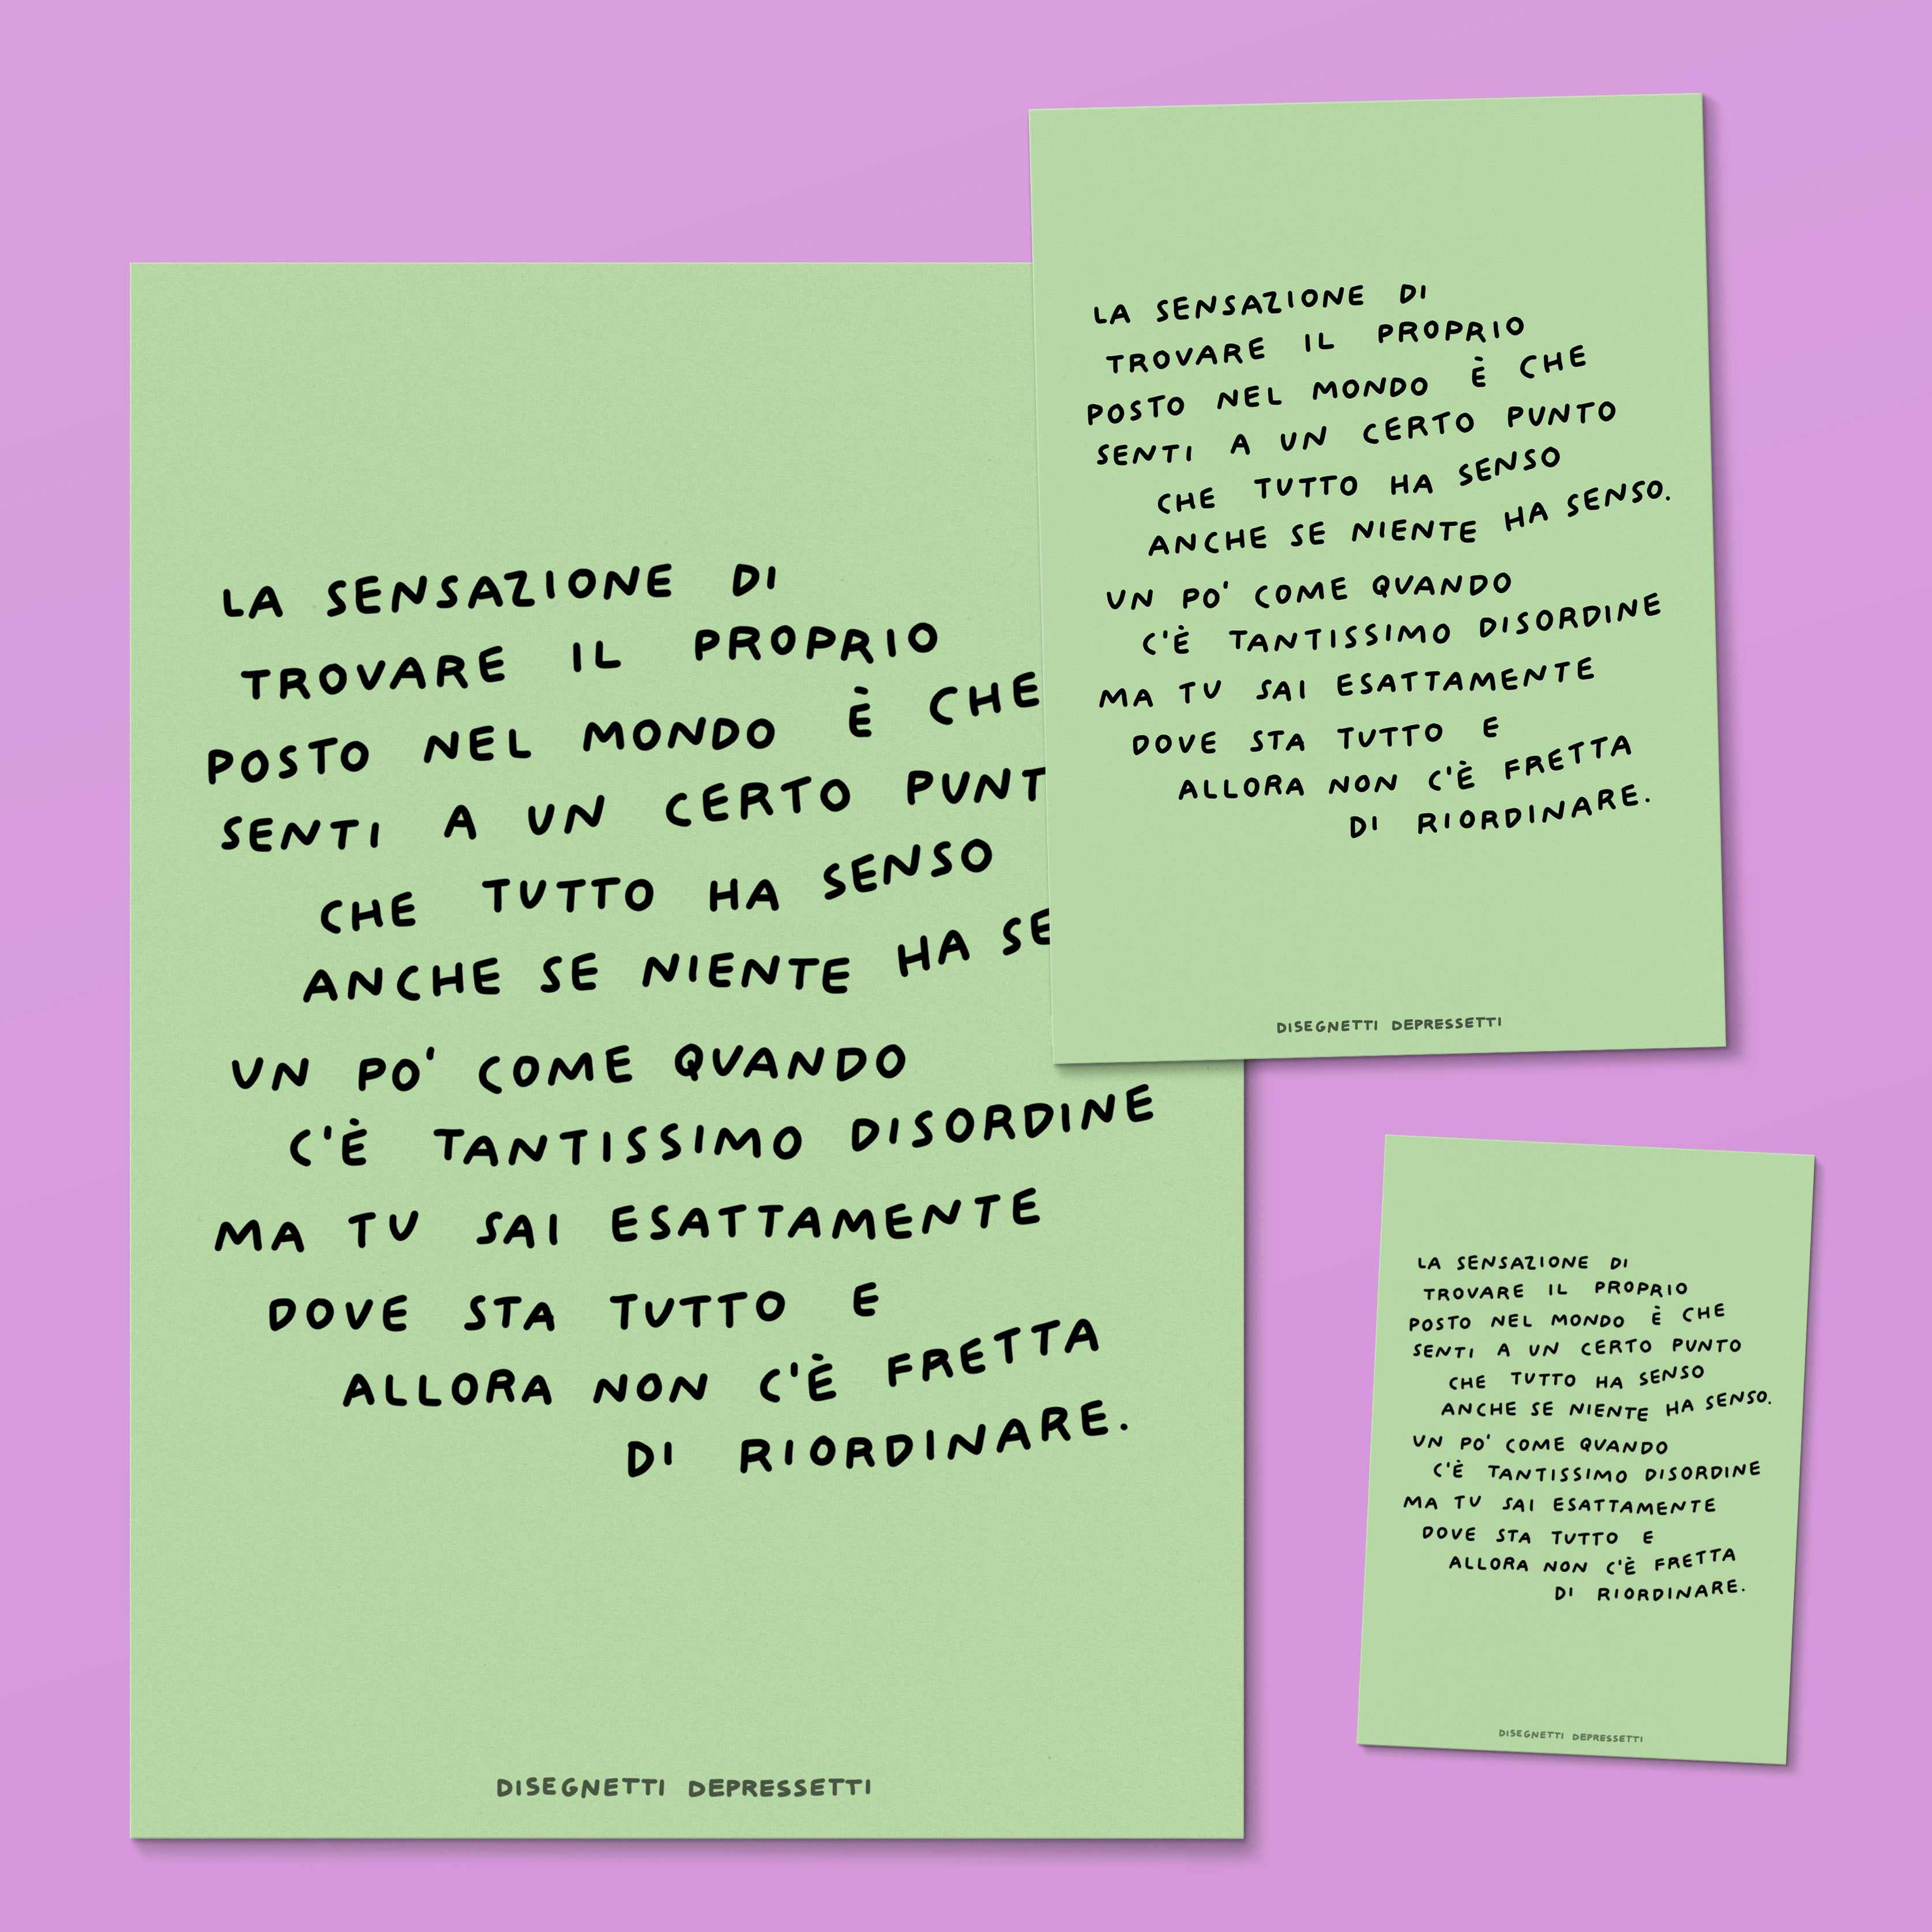 LA SENSAZIONE DI
TROVARE IL PROPRIO
POSTO NEL MONDO È CHE
SENTI A UN CERTO PUNT
CHE TUTTO HA SENSO
ANCHE SE NIENTE HA SE
UN PO' COME QUANDO
C'È TANTISSIMO DISORDINE
MA TU SAI ESATTAMENTE
DOVE STA TUTTO E
ALLORA NON C'È FRETTA
DI RIORDINARE.
DISEGNETTI DEPRESSETTI
LA SENSAZIONE DI
TROVARE IL PROPRIO
POSTO NEL MONDO È CHE
SENTI A UN CERTO PUNTO
CHE TUTTO HA SENSO
ANCHE SE NIENTE HA SENSO.
UN PO' COME QUANDO
C'È TANTISSIMO DISORDINE
MA TU SAI ESATTAMENTE
DOVE STA TUTTO E
ALLORA NON C'È FRETTA
DI RIORDINARE.
DISEGNETTI DEPRESSETTI
LA SENSAZIONE DI
TROVARE IL PROPRIO
POSTO NEL MONDO È CHE
SENTI A UN CERTO PUNTO
CHE TUTTO HA SENSO
ANCHE SE NIENTE HA SENSO.
UN PO' COME QUANDO
C'È TANTISSIMO DISORDINE
MA TU SAI ESATTAMENTE
DOVE STA TUTTO E
ALLORA NON C'È FRETTA
DI RIORDINARE.
DISEGNETTI DEPRESSETTI